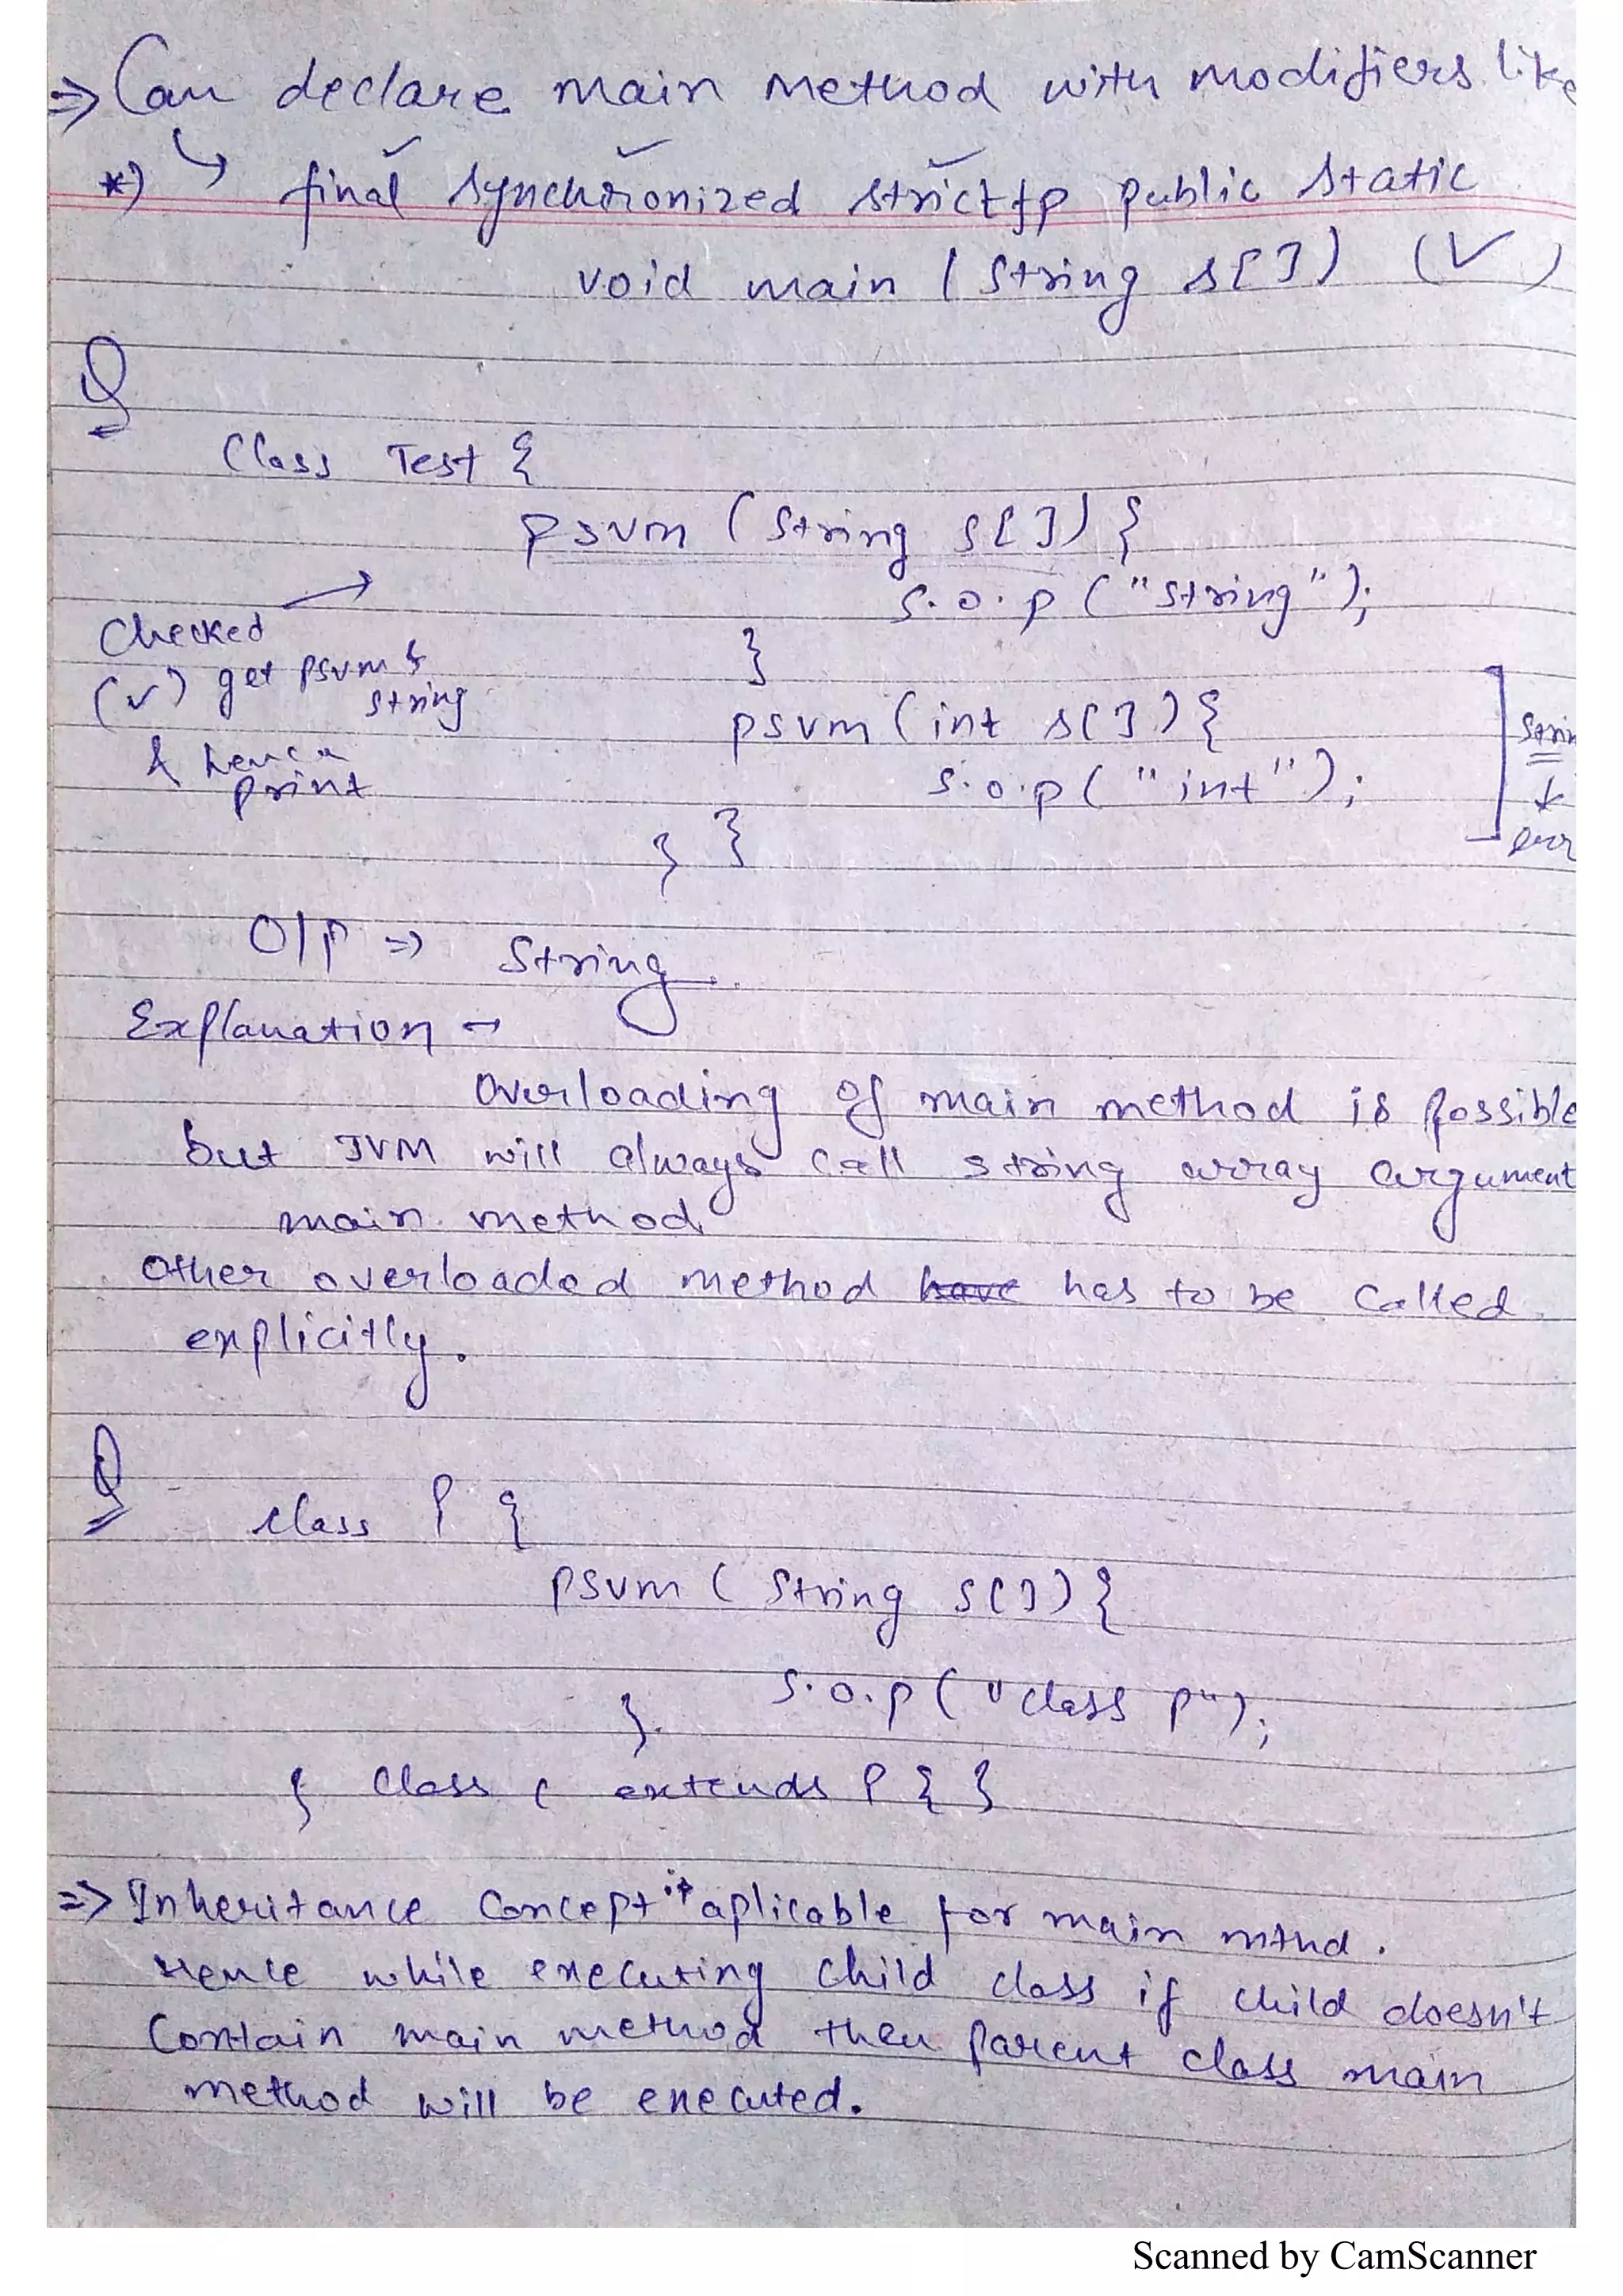 => Can declare main method with modifiers like
*) ↳ final synchronized strictfp public static
void main (String s[]) (✓)
Q
Class Test {
psvm (String s[]) {
s.o.p ("string");
}
Checked →
(✓) get psvm &
string
& hence
print
psvm (int s[]) {
s.o.p ("int");
} }
O/P => String
Explanation →
Overloading of main method is possible
but JVM will always call string array argument
main method
Other overloaded method have has to be called
explicitly.
Q
class P {
psvm (String s[]) {
s.o.p ("class P");
}
} Class C extends P { }
=> Inheritance Concept is aplicable for main mthd.
Hence while executing child class if child doesn't
Contain main method then parent class main
method will be executed.
Scanned by CamScanner